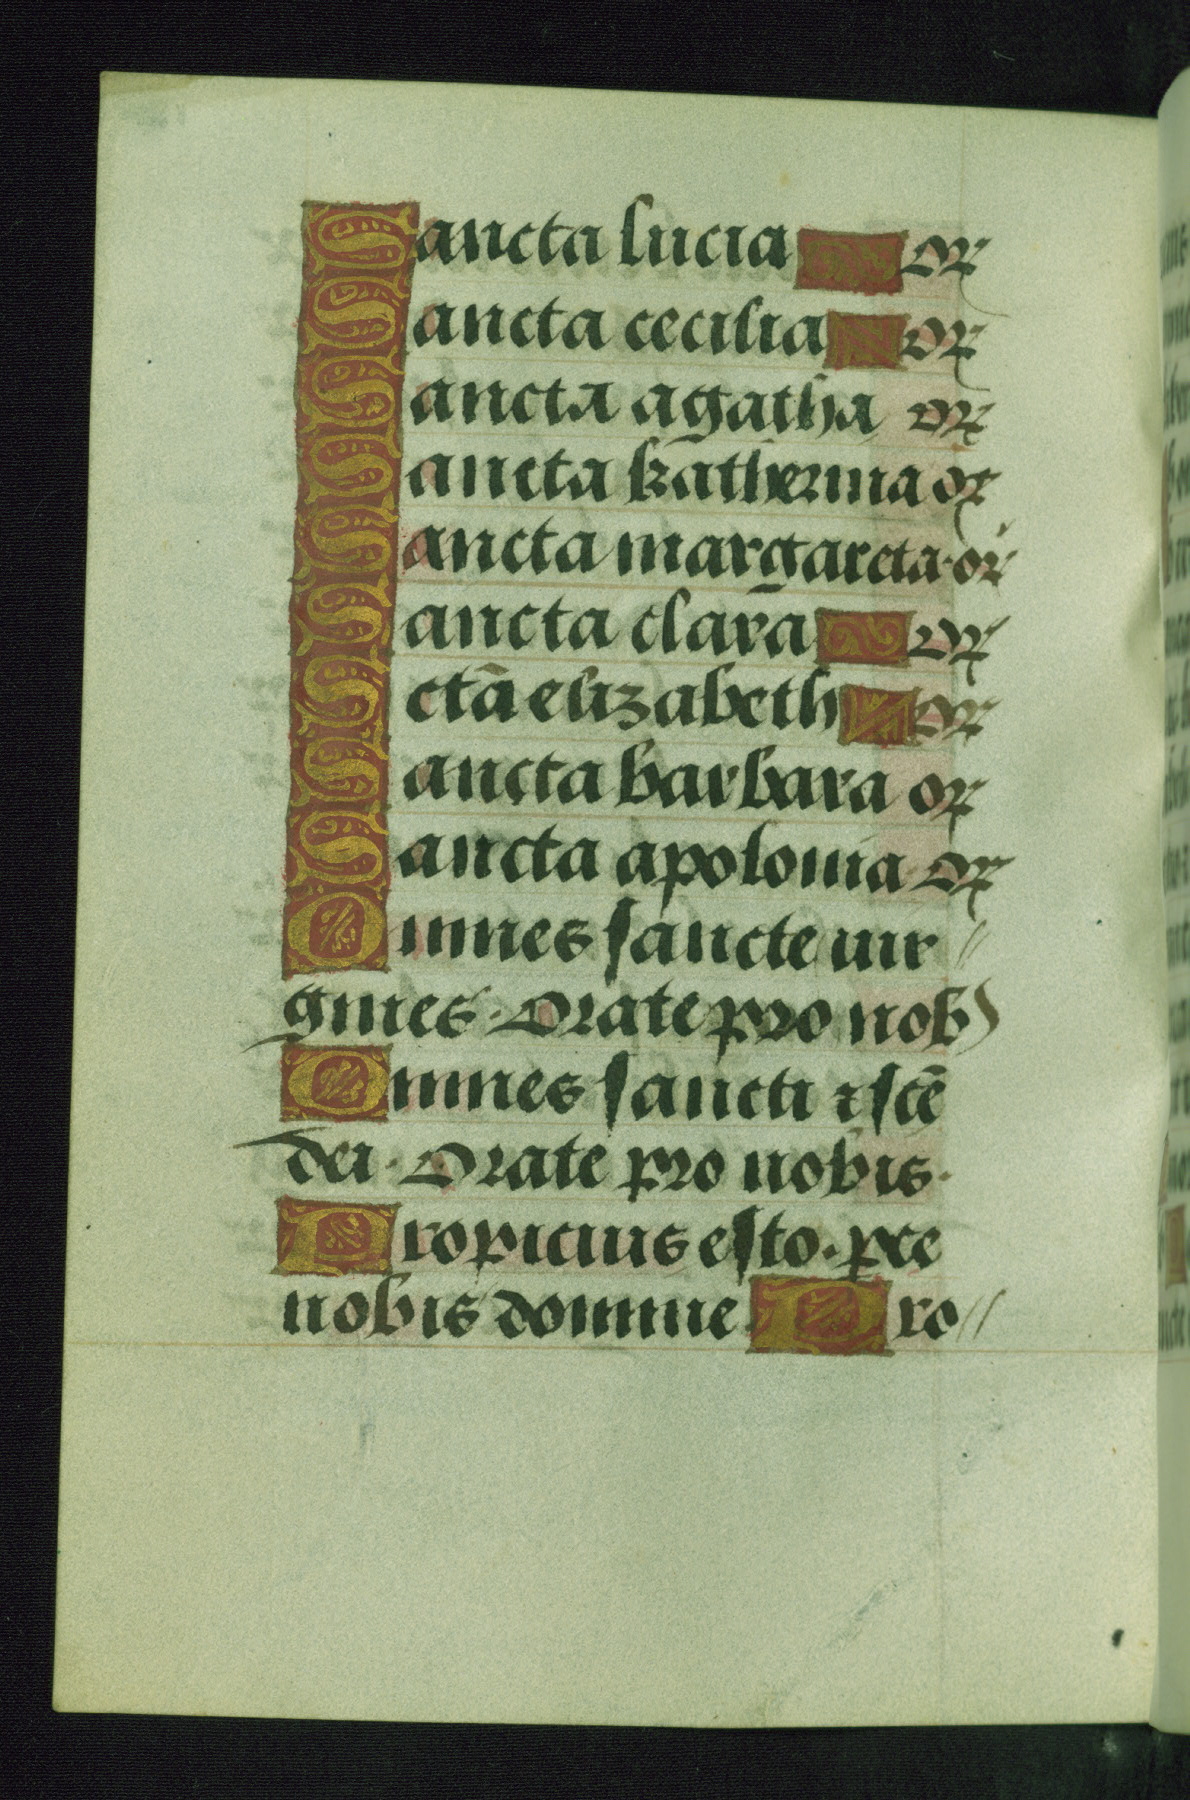 Sancta lucia or
Sancta cecilia or
Sancta agatha or
Sancta katherina or
Sancta margareta · or
Sancta clara or
Sctā elizabeth or
Sancta barbara or
Sancta apolonia or
Omnes sancte uir//
gines · Orate pro nob
Omnes sancti ⁊ scē
dei · Orate pro nobis ·
Propicius esto · pce
nobis domine Pro//